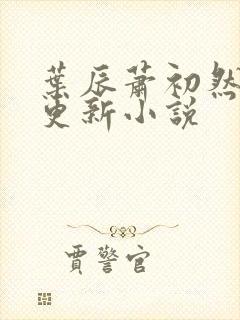 葉辰蕭初然
更新小説
賈警官